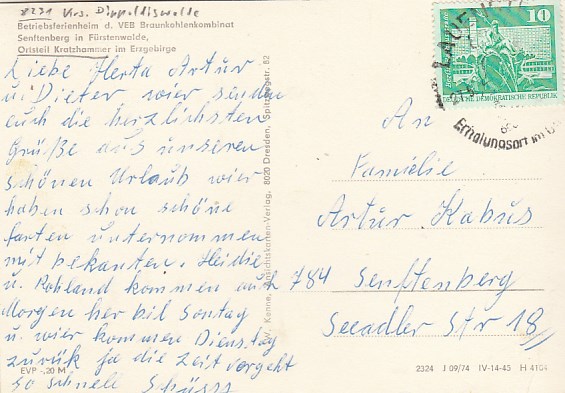 8231 Krs. Dippoldiswalde
Betriebsferienheim d. VEB Braunkohlenkombinat
Senftenberg in Fürstenwalde,
Ortsteil Kratzhammer im Erzgebirge
Liebe Herta Artur
u. Dieter wier senden
euch die herzlichsten
Grüße aus unseren
schönen Urlaub wier
haben schon schöne
farten unternommen
mit bekanten. Heidie
u. Rohland kommen auch
Morgen her bil Sontag
u. wier kommen Dienstag
zurück ja die Zeit vergeht
so schnell Schüss
EVP -,20 M
V. Kenne, Ansichtskarten-Verlag, 8020 Dresden, Spitzwegstr. 82
10
DEUTSCHE DEMOKRATISCHE REPUBLIK
LAUENSTEIN
Erholungsort im
An
Familie
Artur Kabus
784 Senftenberg
Seeadler Str 18
2324 J 09/74 IV-14-45 H 4104